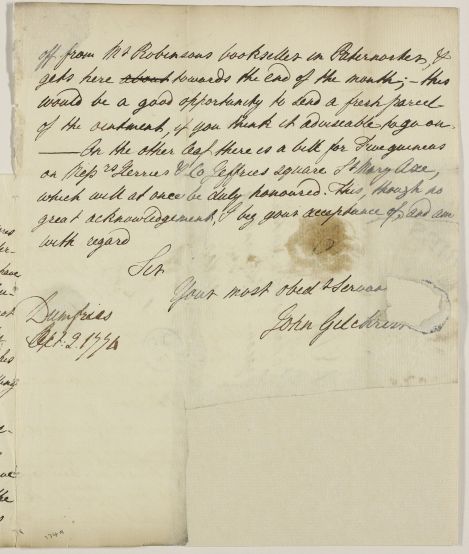 off from Mr Robinsons bookseller in Paternoster, &
gets here about towards the end of the month; – this
would be a good opportunity to send a fresh parcel
of the ointment, if you think it adviseable to go on –
—— On the other leaf there is a bill for five guineas
on Mess.rs & Co Jeffries square St Mary Axe,
which will at once be duly honoured. This, though no
great acknowledgement, I beg your acceptance of, and am
with regard
Sir
Your most obedt Servan
John Gilchris
Dumfries
2. 177